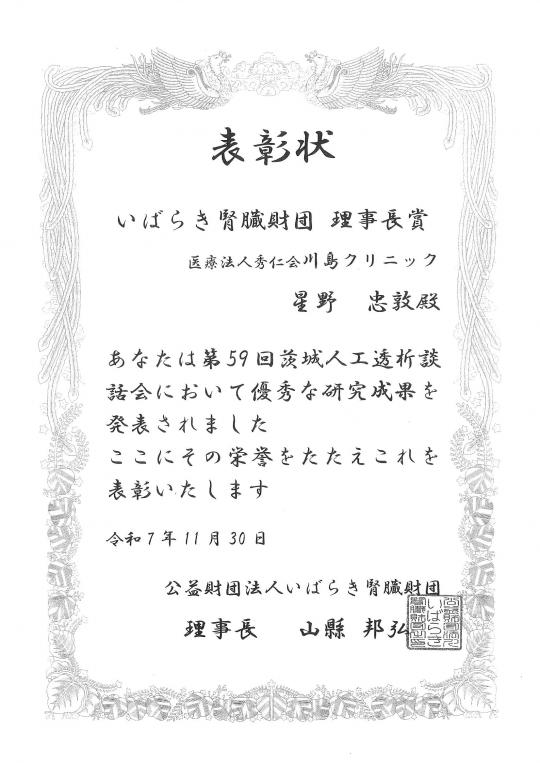 表彰状
いばらき腎臓財団 理事長賞
医療法人秀仁会川島クリニック
星野 忠敦殿
あなたは第59回茨城人工透析談
話会において優秀な研究成果を
発表されました
ここにその栄誉をたたえこれを
表彰いたします
令和7年11月30日
公益財団法人いばらき腎臓財団
理事長 山縣 邦弘